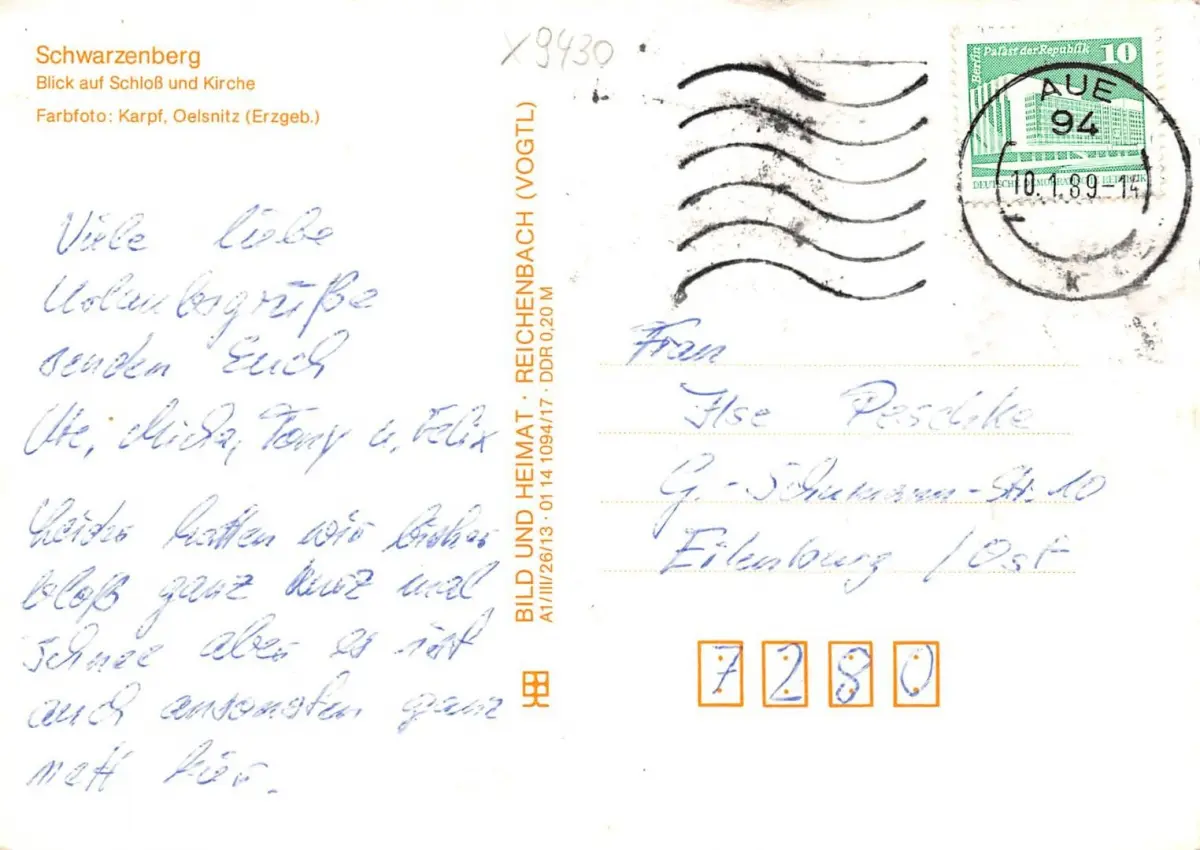 Schwarzenberg
Blick auf Schloß und Kirche
Farbfoto: Karpf, Oelsnitz (Erzgeb.)
X9430
Viele liebe
Urlaubsgrüße
senden Euch
Ute, Micha, Tony u. Felix
Leider hatten wir bisher
bloß ganz kurz mal
Schnee aber es ist
auch ansonsten ganz
nett hier.
BILD UND HEIMAT · REICHENBACH (VOGTL)
A1/III/26/13 · 01 14 1094/17 · DDR 0,20 M
Berlin Palast der Republik 10
DEUTSCHE DEMOKRATISCHE REPUBLIK
AUE
94
10.1.89-14
k
Frau
Ilse Peschke
G.-Schumann-Str. 10
Eilenburg / Ost
7280